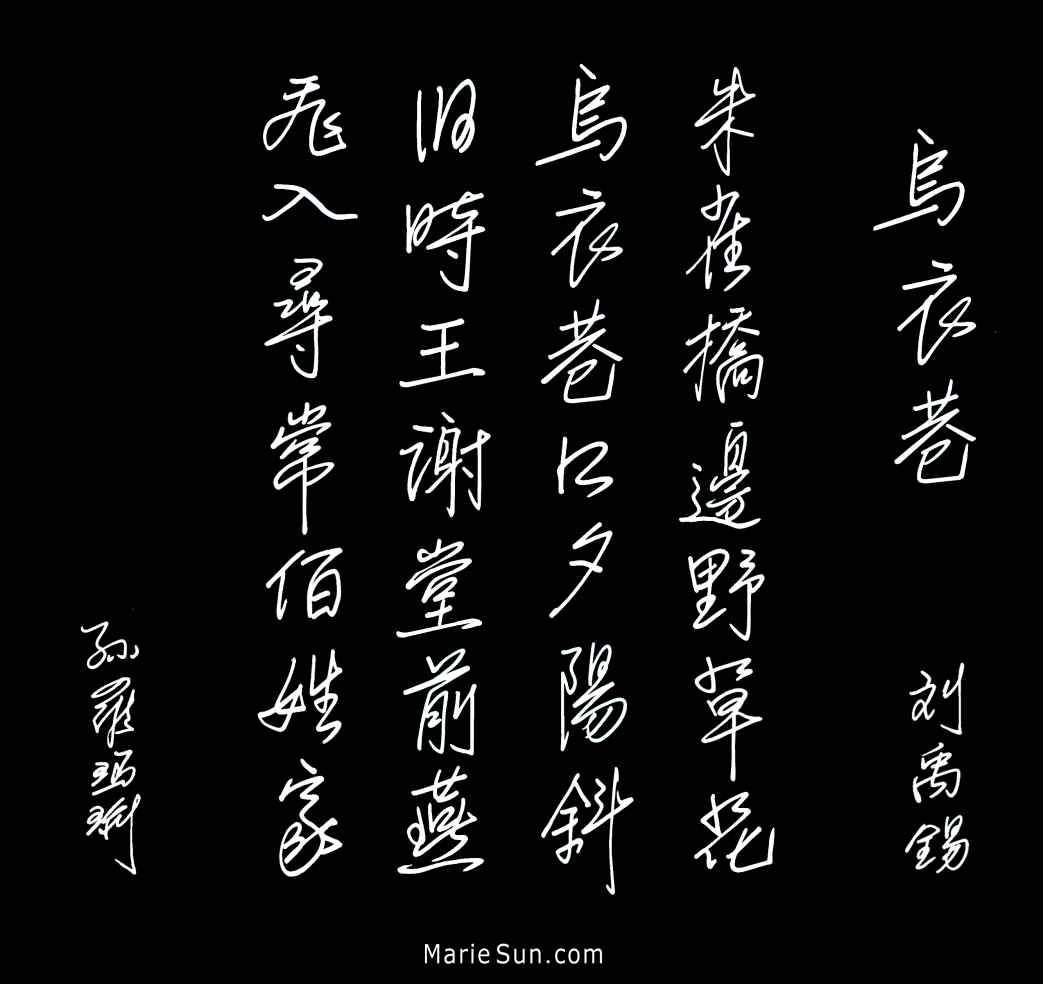 烏衣巷
刘禹錫
朱雀橋邊野草花
烏衣巷口夕陽斜
旧時王謝堂前燕
飛入尋常佰姓家
孫羅瑪琍
MarieSun.com